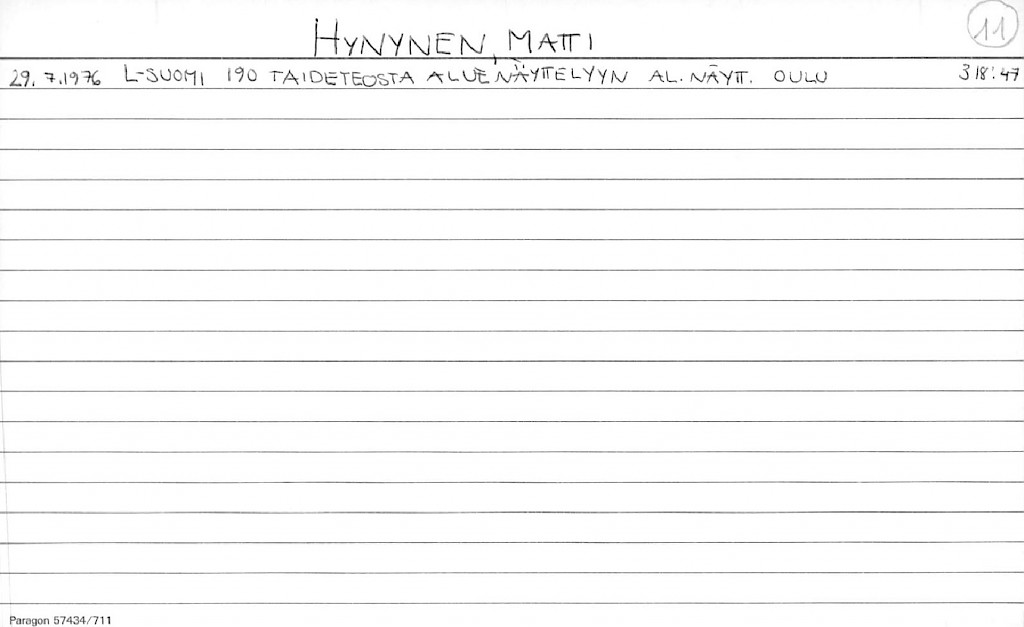 HYNYNEN, MATTI
11
29. 7.1976 L-SUOMI 190 TAIDETEOSTA ALUENÄYTTELYYN AL. NÄYTT. OULU 318:47
Paragon 57434/711